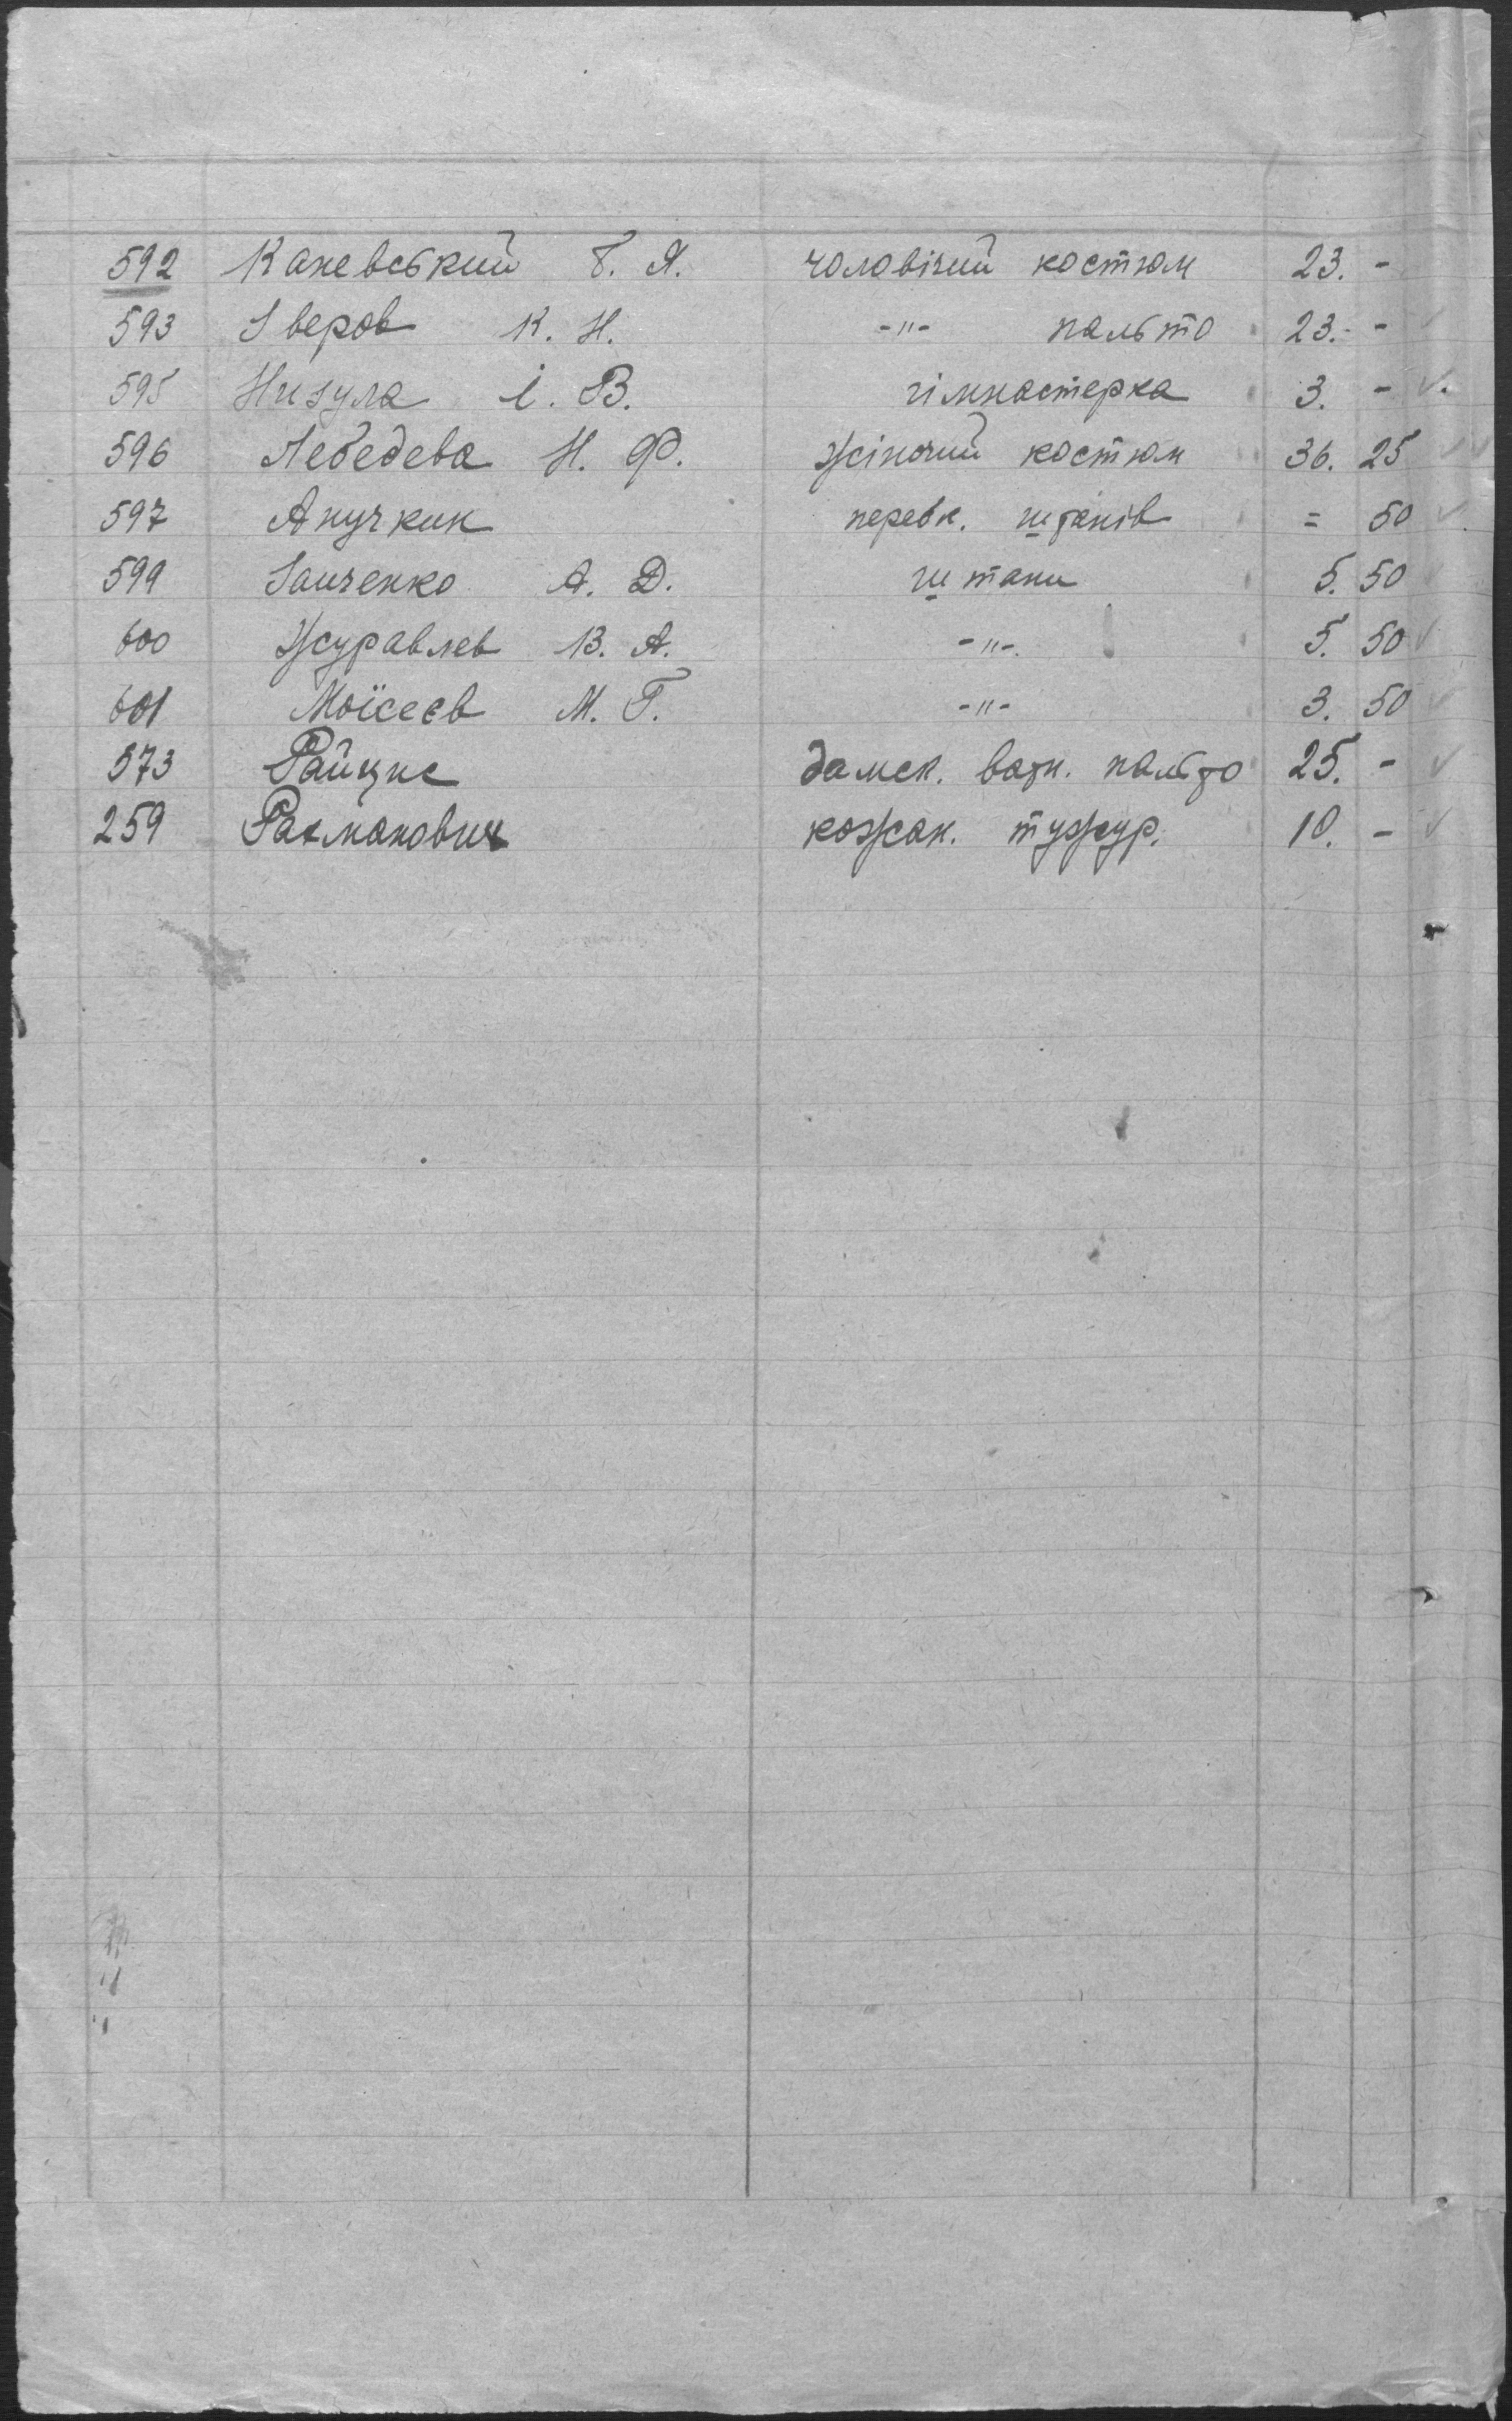 592 Каневський Б. Я. чоловічий костюм 23. -
593 Зверов К. Н. -"- пальто 23. -
595 Нигула І. В. гімнастерка 3. - ✓
596 Лебедева Н. Ф. жіночий костюм 36. 25 ✓
597 Анучкин штанів = 50 ✓
599 Заиченко А. Д. штани 5. 50
600 Журавлев В. А. -"- 5. 50 ✓
601 Моїсеєв М. Г. -"- 3. 50 ✓
573 дамск. ватн. пальто 25. - ✓
259 Рахманович кожан. тужур. 10. - ✓